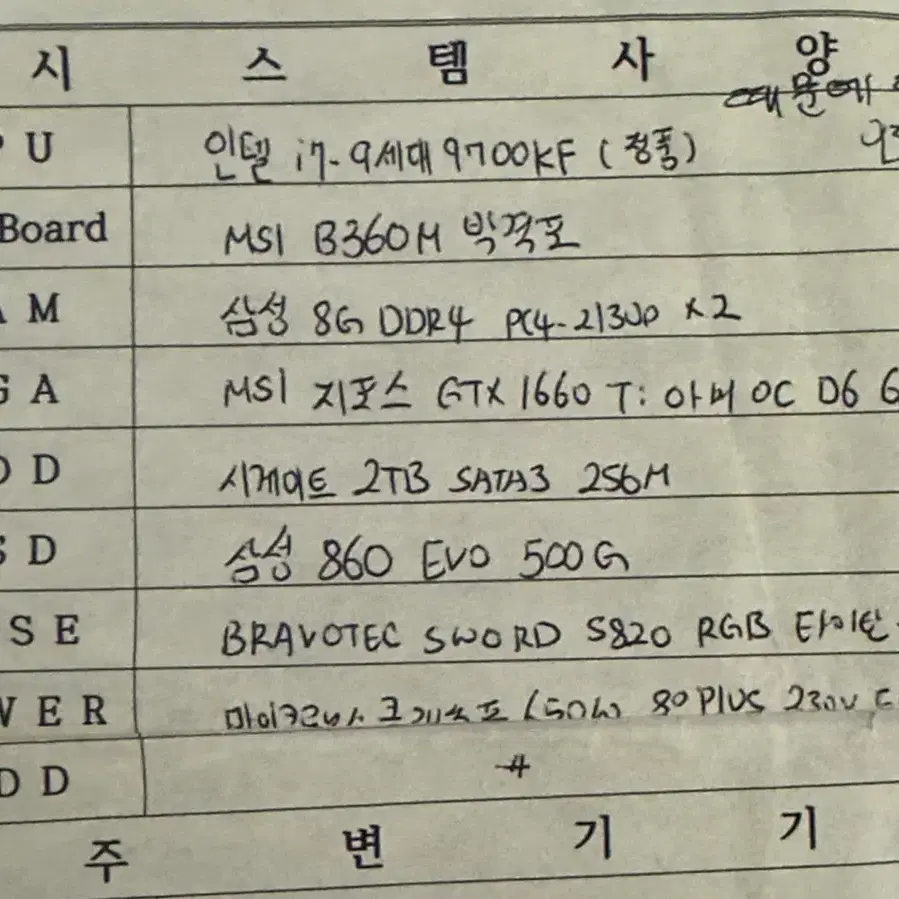 시 스 템 사 양
때문에
P U 인텔 i7-9세대 9700KF (정품)
Board MSI B360M 박격포
A M 삼성 8G DDR4 PC4-21300 x2
G A MSI 지포스 GTX 1660 Ti 아머 OC D6 6
D D 시게이트 2TB SATA3 256M
S D 삼성 860 EVO 500G
S E BRAVOTEC SWORD S820 RGB 타이탄
W E R 마이크로닉스 80 PLUS 230V E
D D #
주 변 기 기